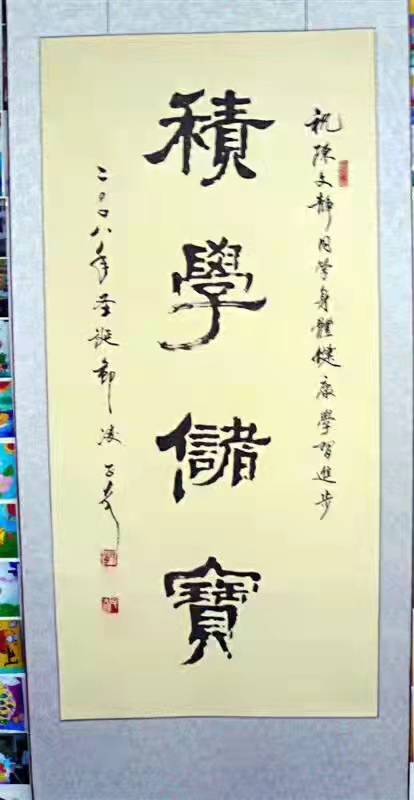 祝陳文靜同学身體健康學習進步
積學儲寶
二〇〇八年圣诞節凌